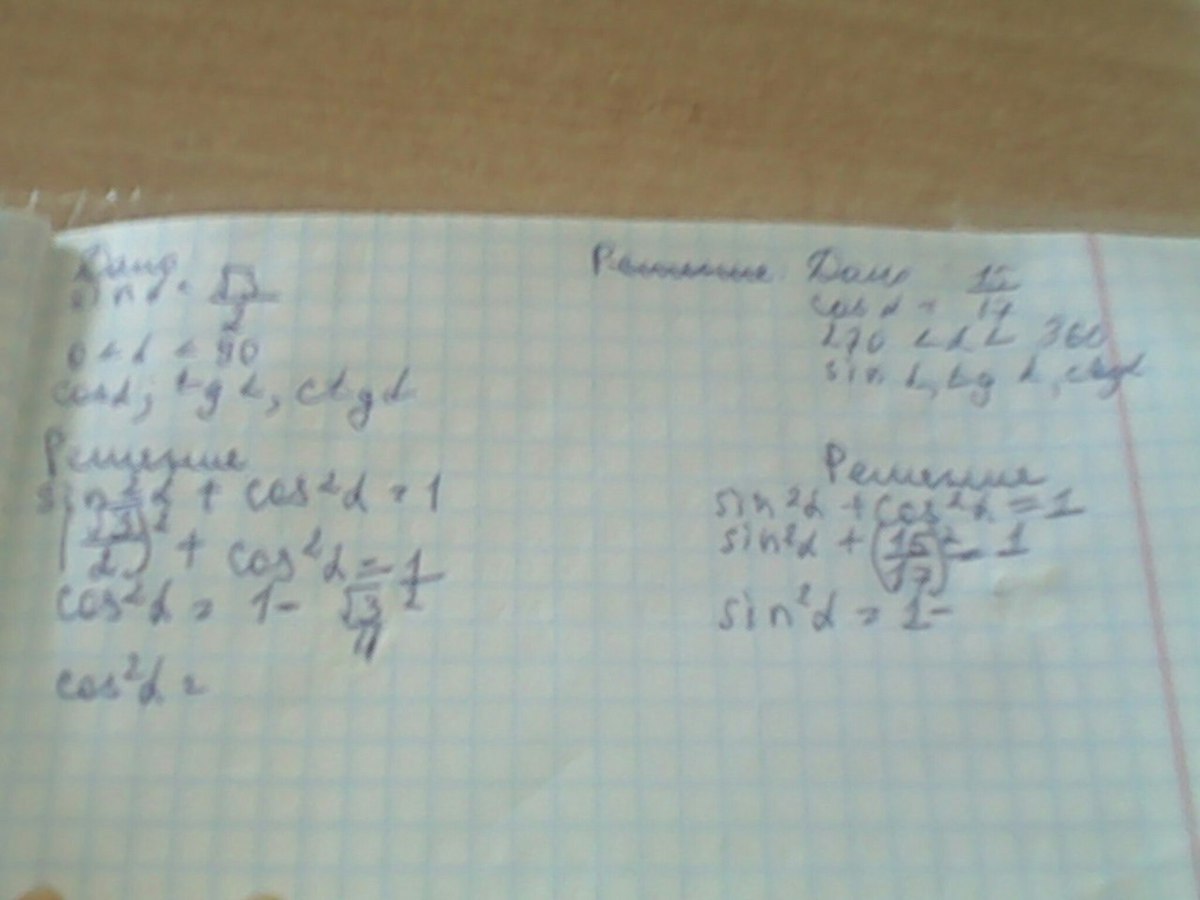 Дано
sin α = √3/2
0 < α < 90
cos α; tg α, ctg α
Решение
sin²α + cos²α = 1
(√3/2)² + cos²α = 1
cos²α = 1 -
cos²α =
Решение. Дано
cos α = 15/17
270 < α < 360
sin α, tg α, ctg α
Решение
sin²α + cos²α = 1
sin²α + (15/17)² = 1
sin²α = 1 -